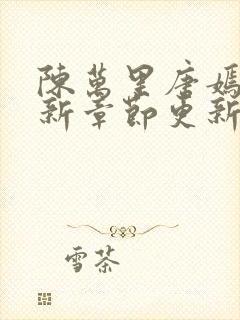 陳萬里唐嫣
新章節更新
雪茶